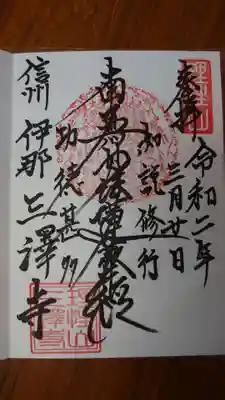 奉拝 令和二年
三月廿日
如説修行
南無妙法蓮華経
功徳甚多
信州 伊那 三澤寺